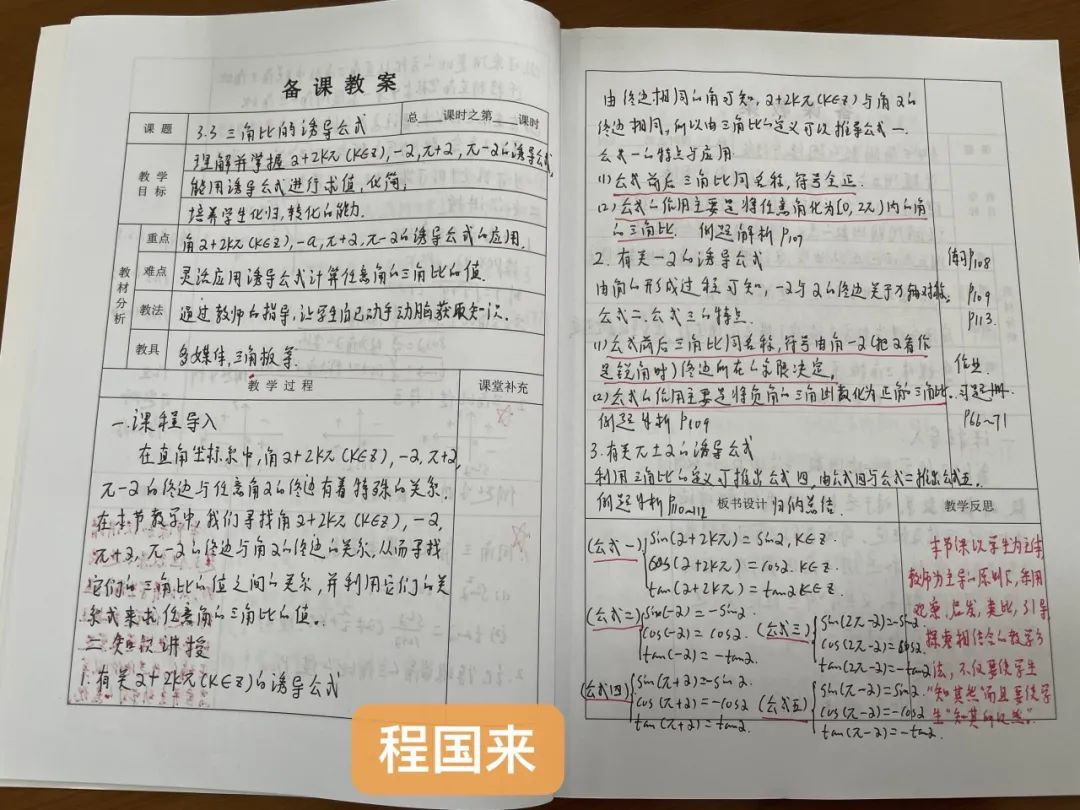 备课教案
课题 3.3 三角比的诱导公式 总 课时之第 课时
教学目标
理解并掌握 α+2kπ(k∈Z), -α, π+α, π-α的诱导公式,
能用诱导公式进行求值,化简,
培养学生化归,转化的能力.
教材分析
重点 角α+2kπ(k∈Z), -α, π+α, π-α的诱导公式的应用.
难点 灵活应用诱导公式计算任意角的三角比的值
教法 通过教师的指导,让学生自己动手动脑获取知识.
教具 多媒体,三角板等.
教学过程 课堂补充
一.课程导入
在直角坐标系中,角α+2kπ(k∈Z), -α, π+α,
π-α的终边与任意角α的终边有着特殊的关系.
在本节教学中,我们寻找角α+2kπ(k∈Z), -α,
π+α, π-α的终边与角α的终边的关系,从而寻找
它们的三角比的值之间的关系,并利用它们的关
系式来求任意角的三角比的值.
二.知识讲授
1.有关α+2kπ(k∈Z)的诱导公式
由终边相同的角可知, α+2kπ(k∈Z)与角α的
终边相同,所以由三角比的定义可以推导公式一.
公式一的特点与应用.
(1)公式前后三角比同名称,符号全正.
(2)公式的作用主要是将任意角化为[0, 2π)内的角
的三角比. 例题解析 P107
2.有关-α的诱导公式 练习P108
由角的形成过程可知, -α与α的终边关于x轴对称. P109
公式二,公式三的特点. P113.
(1)公式前后三角比同名称,符号由角-α(把α看作
是锐角时)终边所在的象限决定. 作业
(2)公式的作用主要是将负角的三角函数化为正角的三角比. 习题册.
例题解析 P109 P66~71
3.有关π±α的诱导公式
利用三角比的定义可推出公式四,由公式四与公式二推出公式五.
例题解析P110~112 板书设计 归纳总结. 教学反思
(公式一) sin(α+2kπ)=sinα, k∈Z.
cos(α+2kπ)=cosα. k∈Z
tan(α+2kπ)=tanα k∈Z.
(公式二) sin(-α)=-sinα
cos(-α)=cosα.
tan(-α)=-tanα.
(公式三) sin(2π-α)=-sinα.
cos(2π-α)=cosα.
tan(2π-α)=-tanα
(公式四) sin(π+α)=-sinα.
cos(π+α)=-cosα
tan(π+α)=tanα.
(公式五) sin(π-α)=sinα.
cos(π-α)=-cosα
tan(π-α)=-tanα.
本节课以学生为主体
教师为主导的原则下,采用
观察,启发,类比,引导
探索相结合的教学方
法,不仅要使学生
"知其然"而且要使学
生"知其所以然".
程国来